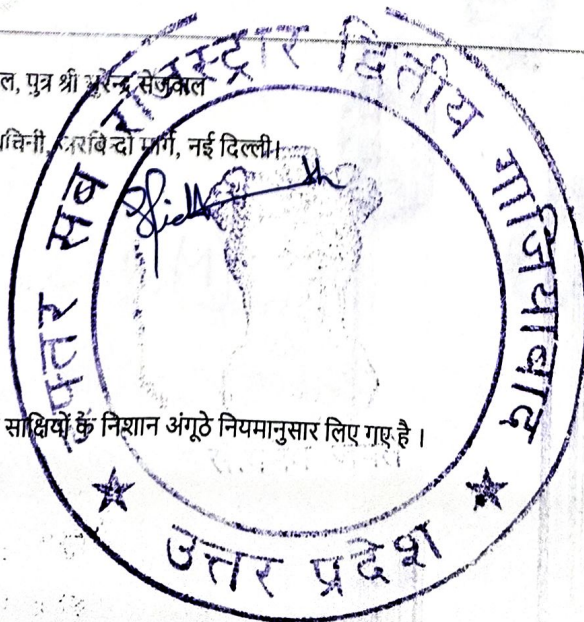 ल, पुत्र श्री सुरेन्द्र सेजवाल
चिनी, अरबिन्दो मार्ग, नई दिल्ली।
साक्षियों के निशान अंगूठे नियमानुसार लिए गए है ।
दफ्तर सब रजिस्ट्रार द्वितीय गाजियाबाद
उत्तर प्रदेश